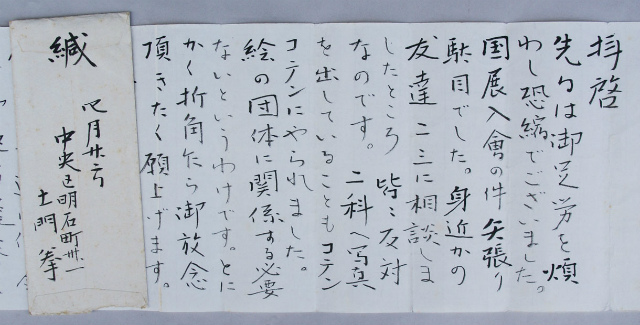 拝啓
先日は御足労を煩
わし恐縮でございました。
国展入會の件 矢張り
駄目でした。身近かの
友達二三に相談しま
したところ 皆々反対
なのです。二科へ写真
を出していることもコテン
コテンにやられました。
絵の団体に関係する必要
ないというわけです。とに
かく折角乍ら御放念
頂きたく願上げます。
緘
四月廿
中央区明石町卅一
土門拳